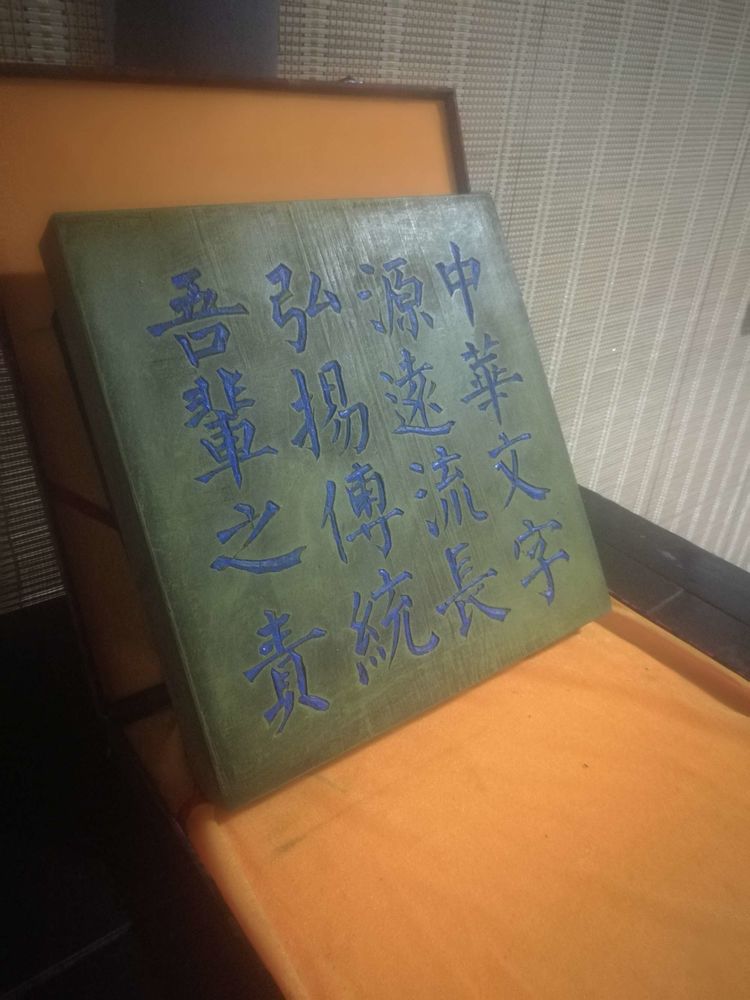 中華文字
源遠流長
弘揚傳統
吾輩之責